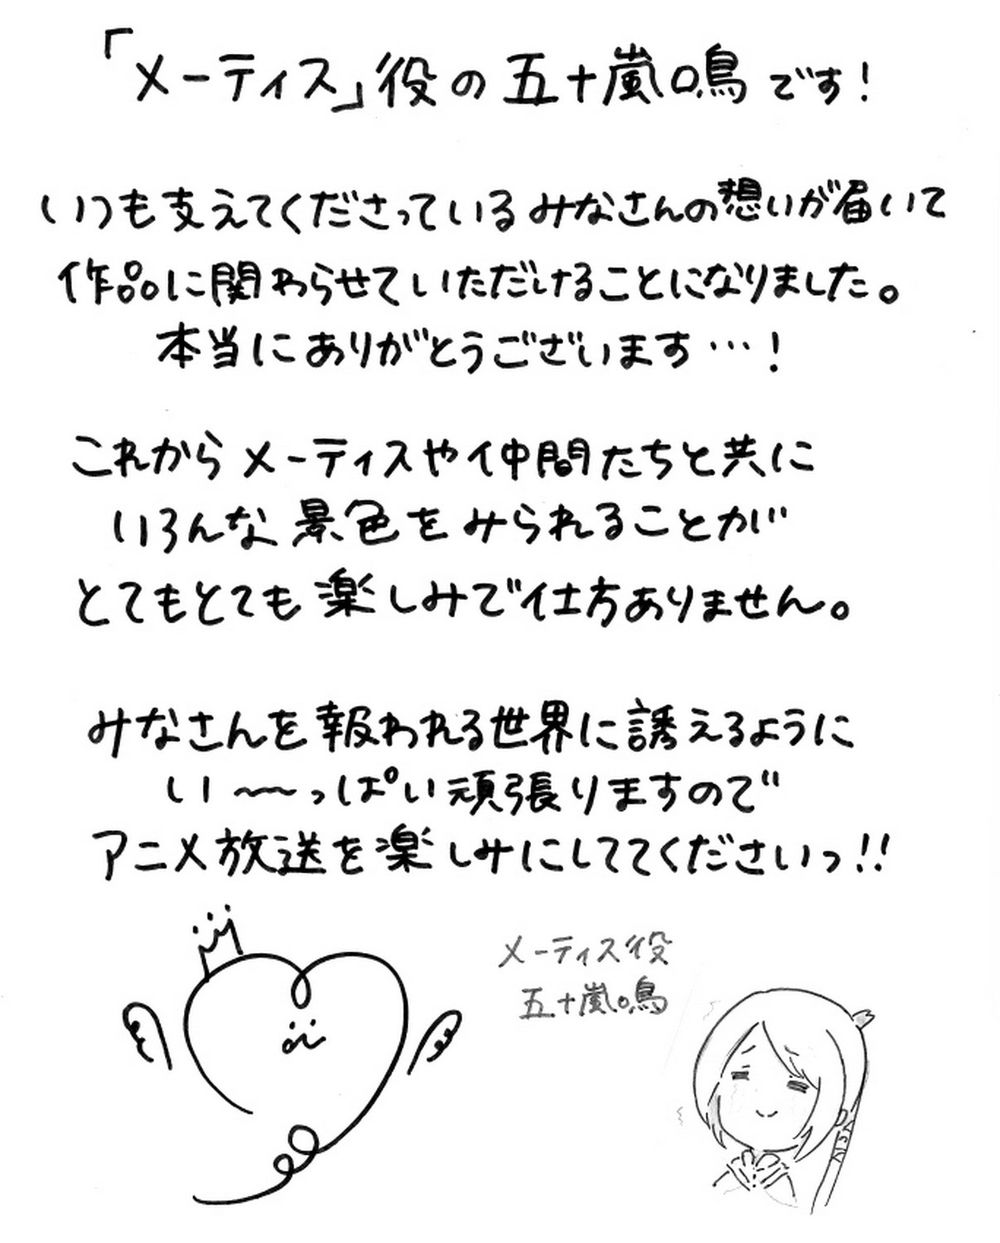 「メーティス」役の五十嵐鳴です!
いつも支えてくださっているみなさんの想いが届いて
作品に関わらせていただけることになりました。
本当にありがとうございます…!
これからメーティスや仲間たちと共に
いろんな景色をみられることが
とてもとても楽しみで仕方ありません。
みなさんを報われる世界に誘えるように
い〜〜っぱい頑張りますので
アニメ放送を楽しみにしててくださいっ!!
メーティス役
五十嵐鳴